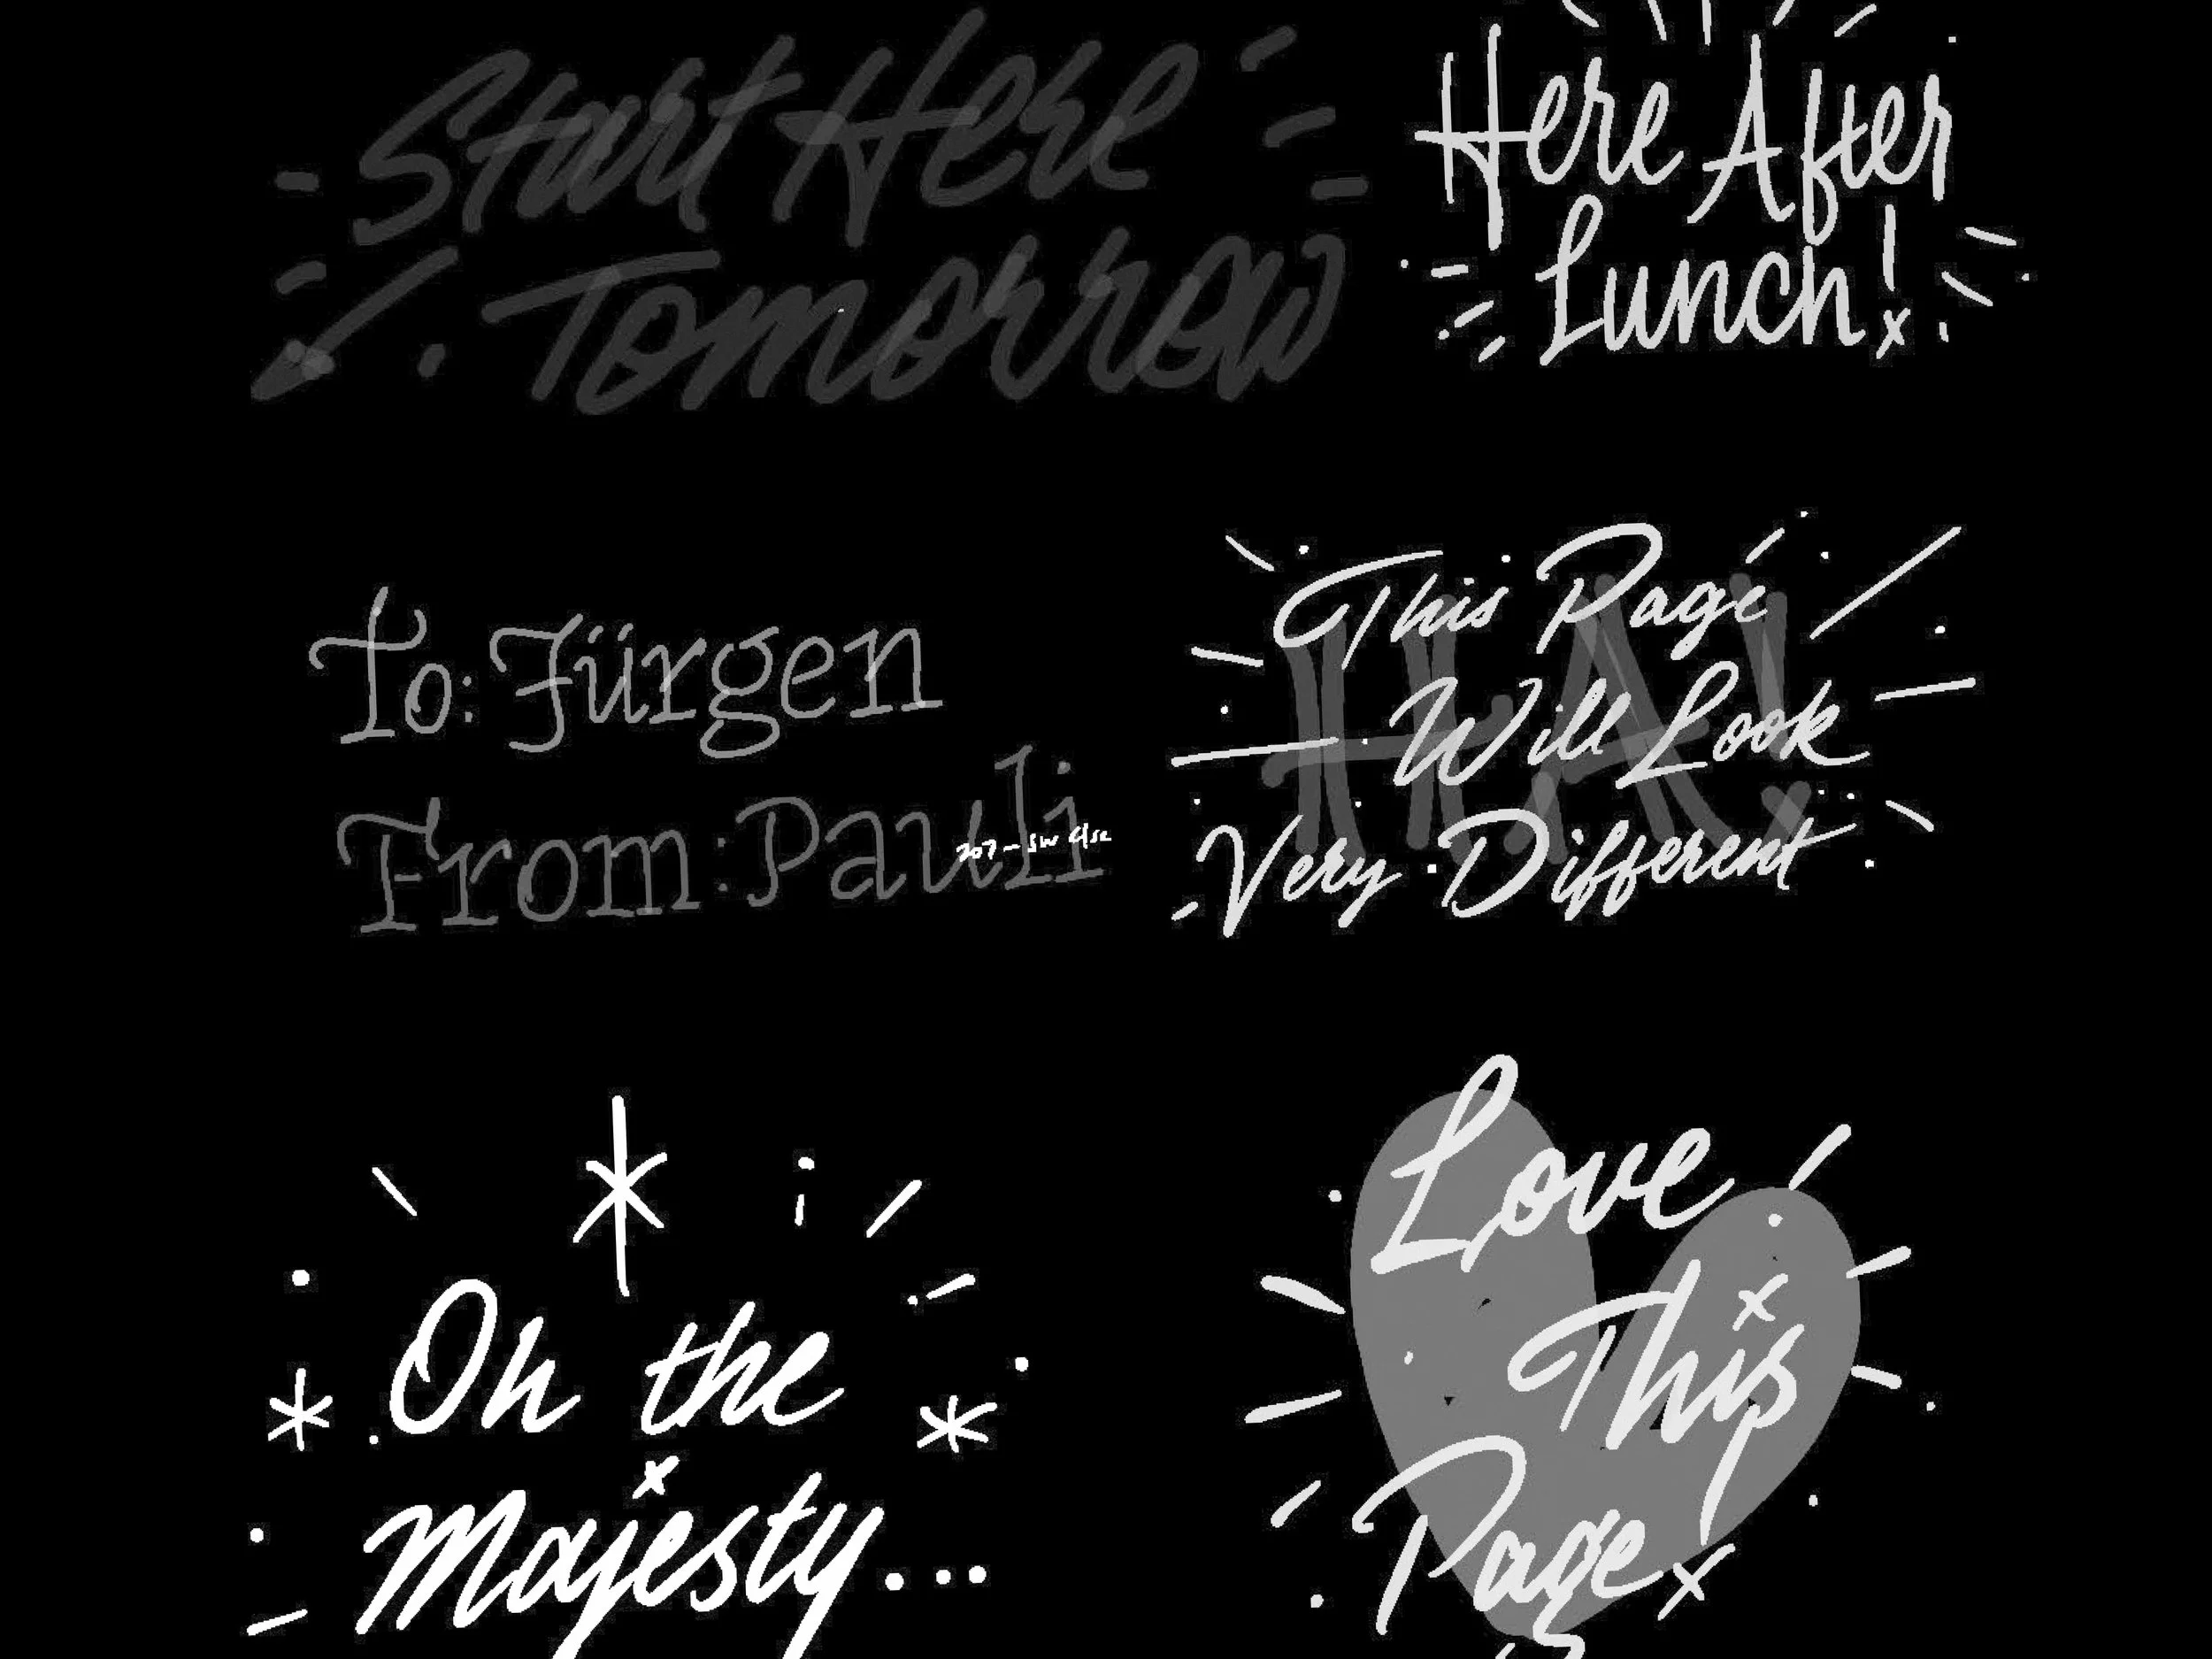 Start Here
Tomorrow
Here After
Lunch!
To: Jürgen
From: Pauli
This Page
Will Look
Very Different
HA!
Oh the
Majesty...
Love
This
Page